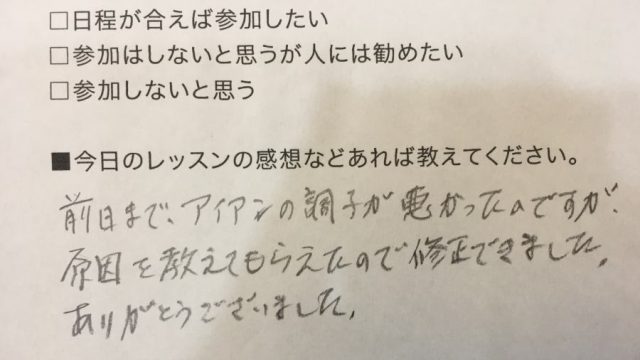 □日程が合えば参加したい
□参加はしないと思うが人には勧めたい
□参加しないと思う
■今日のレッスンの感想などあれば教えてください。
前日まで、アイアンの調子が悪かったのですが、
原因を教えてもらえたので修正できました。
ありがとうございました。